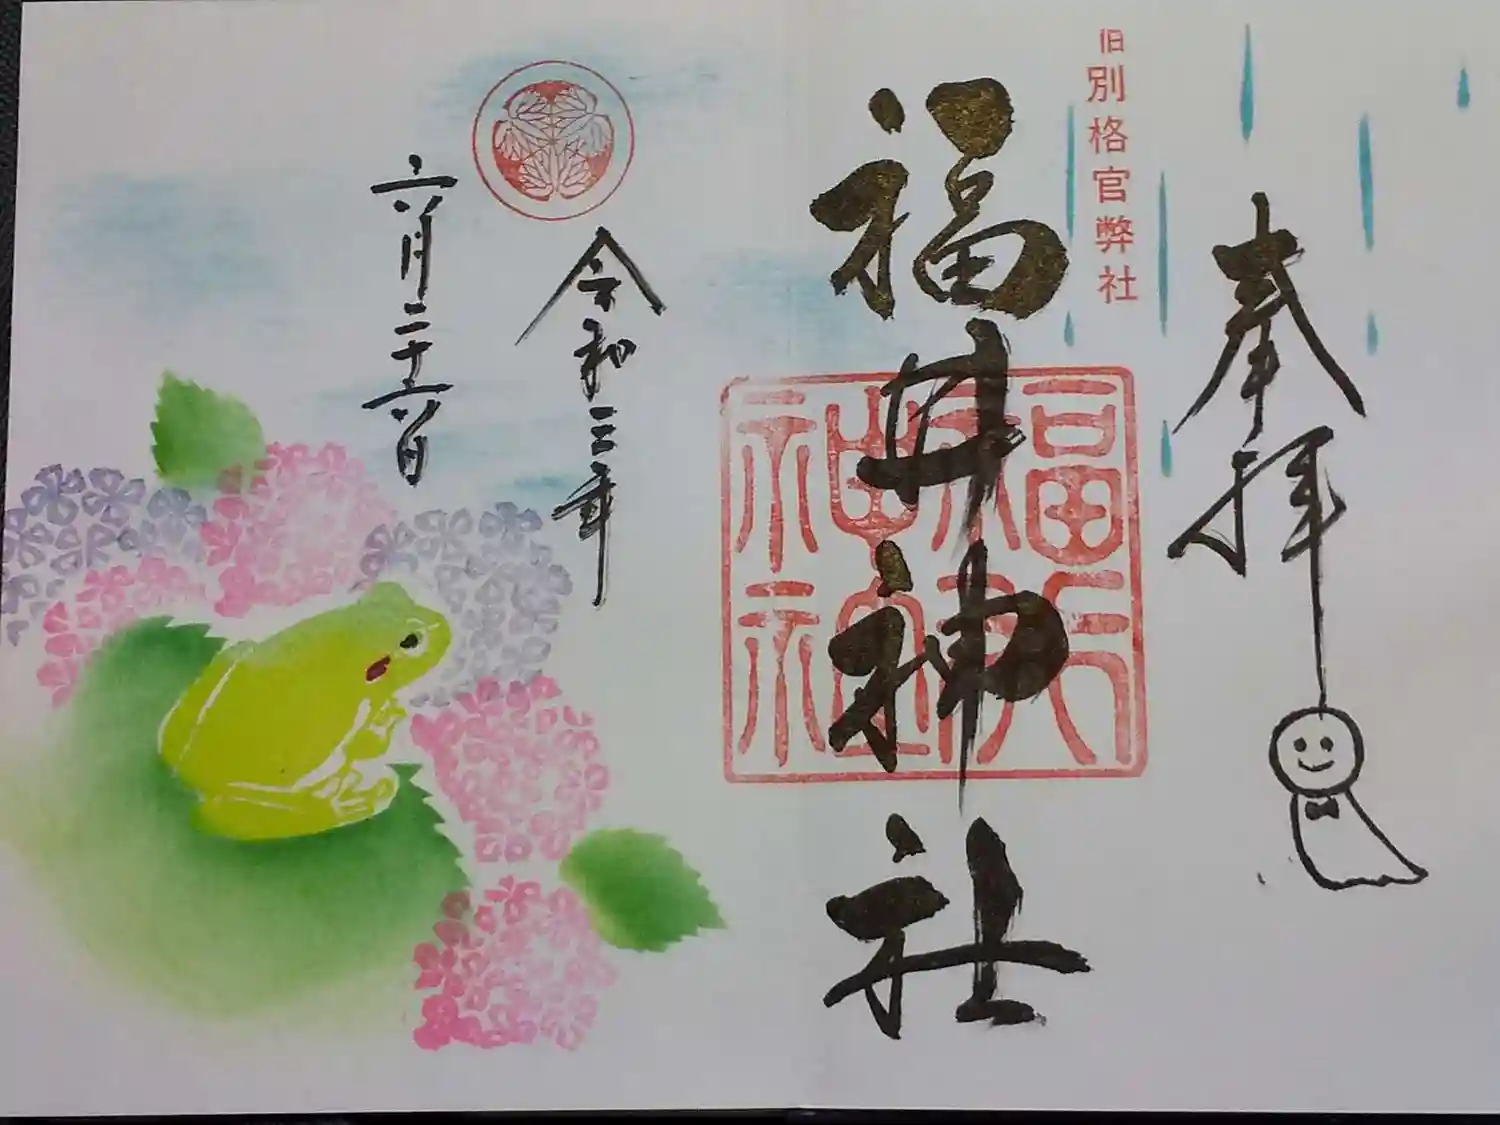 奉拝
旧別格官弊社
福井神社
令和三年
六月二十六日